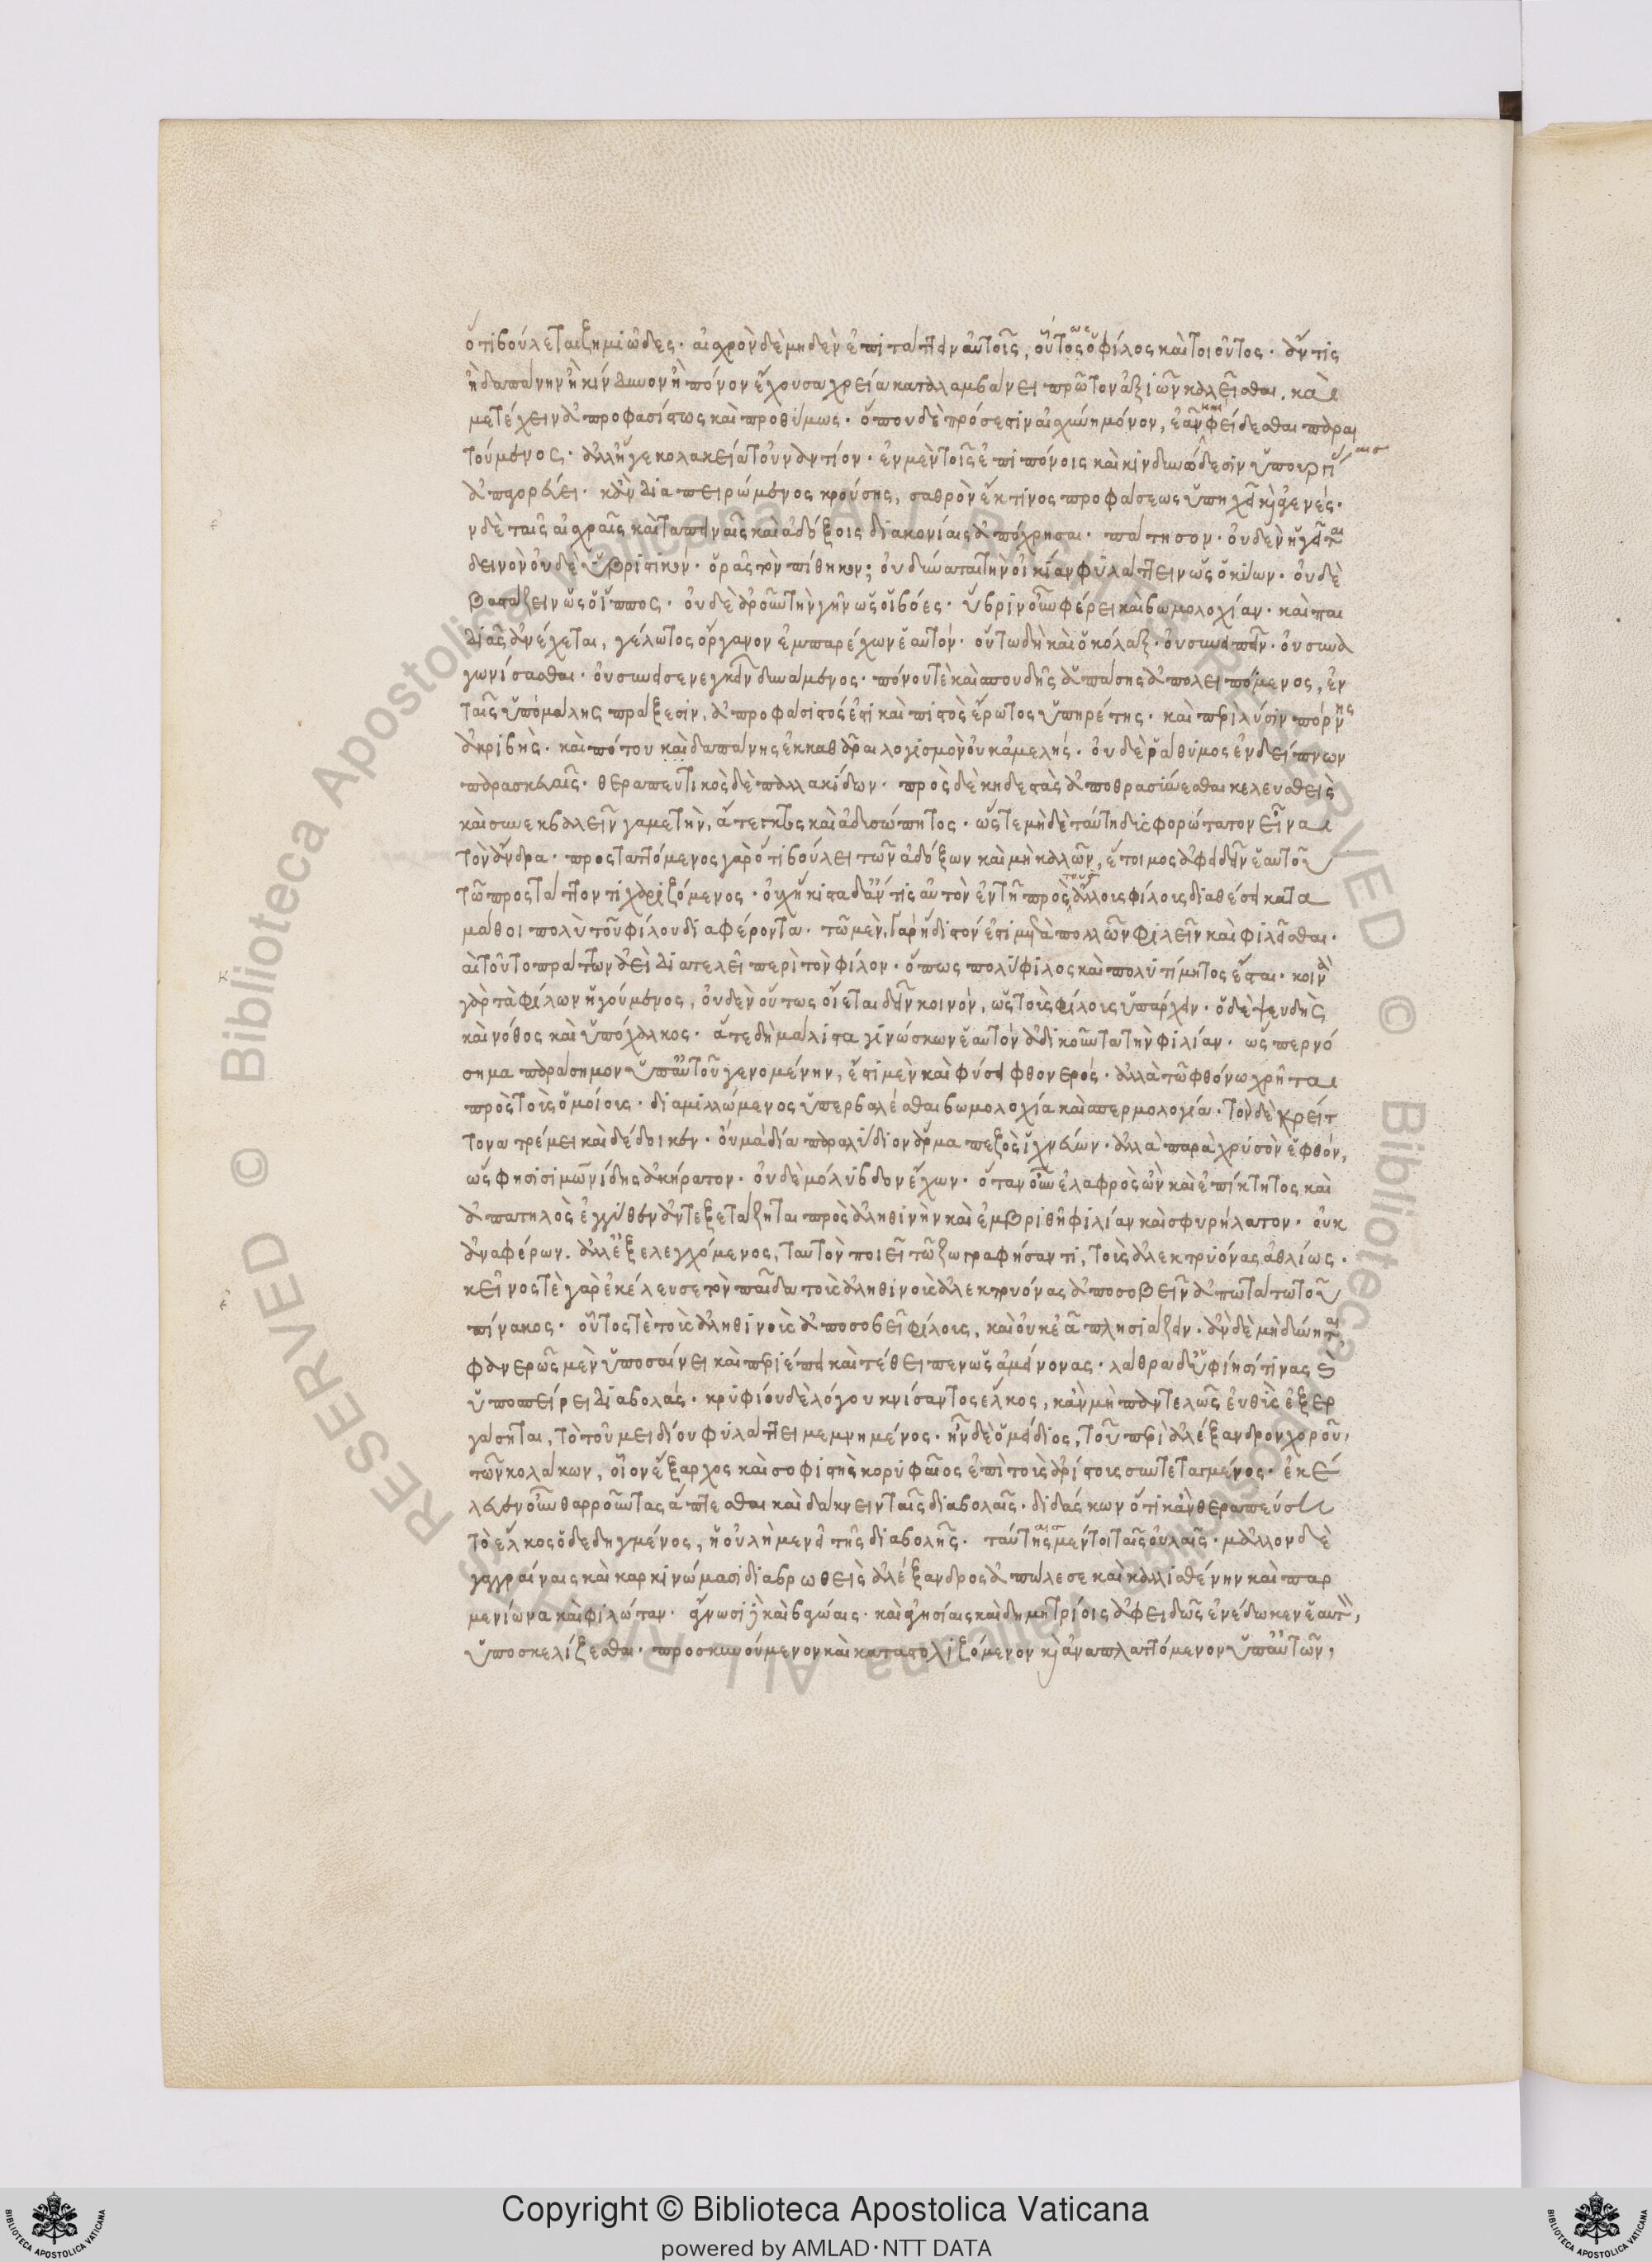 ὅτι βούλεται ζημιῶδες· αἰσχρὸν δὲ μηδὲν ἐπιτάττειν αὐτοῖς, οὗτος ὁ φίλος καὶ τοιοῦτος· ἄν τις
ἢ δαπάνην ἢ κίνδυνον ἢ πόνον ἔχουσα χρεία καταλαμβάνει πρῶτον ἀξιῶν καλεῖσθαι. καὶ
μετέχειν ἀπροφασίστως καὶ προθύμως· ὅπου δὲ πρόσεστιν αἰσχύνη μόνον, ἐᾶν καὶ φείδεσθαι παραι
τούμενος· ἀλλ' ἥ γε κολακεία τοὐναντίον· ἐν μὲν τοῖς ἐπιπόνοις καὶ κινδυνώδεσιν ὑπουργίαις
ἀπαγορεύει· κἂν διαπειρώμενος κρούσῃς, σαθρὸν ἔκ τινος προφάσεως ὑπηχεῖ καὶ ἀγενές·
ἐν δὲ ταῖς αἰσχραῖς καὶ ταπειναῖς καὶ ἀδόξοις διακονίαις ἀπόχρησαι· πάτησον· οὐδὲν ἡγεῖται
δεινὸν οὐδὲ ὑβριστικόν· ὁρᾷς τὸν πίθηκον; οὐ δύναται τὴν οἰκίαν φυλάττειν ὡς ὁ κύων· οὐδὲ
βαστάζειν ὡς ὁ ἵππος· οὐδὲ ἀροῦν τὴν γῆν ὡς οἱ βόες· ὕβριν οὖν φέρει καὶ βωμολοχίαν· καὶ παι
διὰς ἀνέχεται, γέλωτος ὄργανον ἐμπαρέχων ἑαυτόν· οὕτω δὴ καὶ ὁ κόλαξ· οὐ συνειπεῖν· οὐ συνα
γωνίσασθαι· οὐ συνεισενεγκεῖν δυνάμενος· πόνου τὲ καὶ σπουδῆς ἁπάσης ἀπολειπόμενος, ἐν
ταῖς ὑπὸ μάλης πράξεσιν, ἀπροφάσιστός ἐστι καὶ πιστὸς ἔρωτος ὑπηρέτης· καὶ περὶ λύσιν πόρνης
ἀκριβὴς· καὶ πότου καὶ δαπάνης ἐκκαθᾶραι λογισμὸν οὐκ ἀμελής· οὐδὲ ῥάθυμος ἐν δείπνων
παρασκευαῖς· θεραπευτικὸς δὲ παλλακίδων· πρὸς δὲ κηδεστὰς ἀποθρασύνεσθαι κελευσθεὶς
καὶ συνεκβαλεῖν γαμετὴν, ἄτεγκτος καὶ ἀδυσώπητος· ὥστε μηδὲ ταύτῃ δυσφορώτατον εἶναι
τὸν ἄνδρα· προστατόμενος γὰρ ὅτι βούλει τῶν ἀδόξων καὶ μὴ καλῶν, ἕτοιμος ἀφειδεῖν ἑαυτοῦ
τῶ προστάττοντι χαριζόμενος· οὐχ ἥκιστα δ' ἄν τις αὐτὸν ἐν τῇ πρὸς τοὺς ἄλλοις φίλοις διαθέσει κατα
μάθοι πολὺ τοῦ φίλου διαφέροντα· τῶ μὲν γὰρ ἥδιστόν ἐστι μετὰ πολλῶν φιλεῖν καὶ φιλεῖσθαι·
καὶ τοῦτο πράττων ἀεὶ διατελεῖ περὶ τὸν φίλον· ὅπως πολύφιλος καὶ πολυτίμητος ἔσται· κοινὰ
γὰρ τὰ φίλων ἡγούμενος, οὐδὲν οὕτως οἴεται δεῖν κοινόν, ὡς τοὺς φίλους ὑπάρχειν· ὁ δὲ ψευδὴς
καὶ νόθος καὶ ὑπόχαλκος· ἅτε δὴ μάλιστα γινώσκων ἑαυτὸν ἀδικοῦντα τὴν φιλίαν· ὥσπερ νό
σημα παράσημον ὑπ' αὐτοῦ γενομένην, ἔστι μὲν καὶ φύσει φθονερός· ἀλλὰ τῶ φθόνω χρῆται
πρὸς τοὺς ὁμοίους· διαμιλλώμενος ὑπερβαλέσθαι βωμολοχία καὶ σπερμολογία· τὸν δὲ κρείτ
τονα τρέμει καὶ δέδοικεν· οὐ μὰ δία παρὰ λύδιον ἅρμα πεζὸς ἰχνεύων· ἀλλὰ παρὰ χρυσὸν ἑφθόν,
ὥς φησι σιμωνίδης ἀκήρατον· οὐδὲ μόλυβδον ἔχων· ὅταν οὖν ἐλαφρὸς ὢν καὶ ἐπίκτητος καὶ
ἀπατηλὸς ἐγγύθεν ἀντεξετάζηται πρὸς ἀληθινὴν καὶ ἐμβριθῆ φιλίαν καὶ σφυρήλατον· οὐκ
ἀναφέρων. ἀλλ' ἐξελεγχόμενος, ταυτὸν ποιεῖ τῶ ζωγραφήσαντι, τοὺς ἀλεκτρυόνας ἀθλίως·
κεῖνος τὲ γὰρ ἐκέλευσε τὸν παῖδα τοὺς ἀληθινοὺς ἀλεκτρυόνας ἀποσοβεῖν ἀπωτάτω τοῦ
πίνακος· οὗτος τὲ τοὺς ἀληθινοὺς ἀποσοβεῖ φίλους, καὶ οὐκ ἐᾶ πλησιάζειν· ἂν δὲ μὴ δύνηται
φανερῶς μὲν ὑποσαίνει καὶ περιέπει καὶ τέθειπεν ὡς ἀμείνονας· λάθρα δ' ὑφίησί τινας καὶ
ὑποσπείρει διαβολάς· κρυφίου δὲ λόγου κνίσαντος ἕλκος, κἂν μὴ παντελῶς εὐθὺς ἐξερ
γάσηται, τὸ τοῦ μειδίου φυλάττει μεμνημένος· ἦν δὲ ὁ μείδιος, τοῦ περὶ ἀλέξανδρον χοροῦ,
τῶν κολάκων, οἷον ἔξαρχος καὶ σοφιστὴς κορυφαῖος ἐπὶ τοὺς ἀρίστους συντεταγμένος· ἐκέ
λευεν οὖν θαρροῦντας ἅπτεσθαι καὶ δάκνειν ταῖς διαβολαῖς· διδάσκων ὅτι κἂν θεραπεύσῃ
τὸ ἕλκος ὁ δεδηγμένος, ἡ οὐλὴ μενεῖ τῆς διαβολῆς· ταύταις μέντοι ταῖς οὐλαῖς· μᾶλλον δὲ
γαγγραίναις καὶ καρκινώμασι διαβρωθεὶς ἀλέξανδρος ἀπώλεσε καὶ καλλισθένην καὶ παρ
μενίωνα καὶ φιλώταν· ἅγνωσι καὶ βαγώαις· καὶ ἀγησίαις καὶ δημητρίοις ἀφειδῶς ἐνέδωκεν ἑαυτὸν,
ὑποσκελίζεσθαι· προσκυνούμενον καὶ καταστολιζόμενον καὶ ἀναπλαττόμενον ὑπ' αὐτῶν,
Copyright © Biblioteca Apostolica Vaticana
powered by AMLAD·NTT DATA